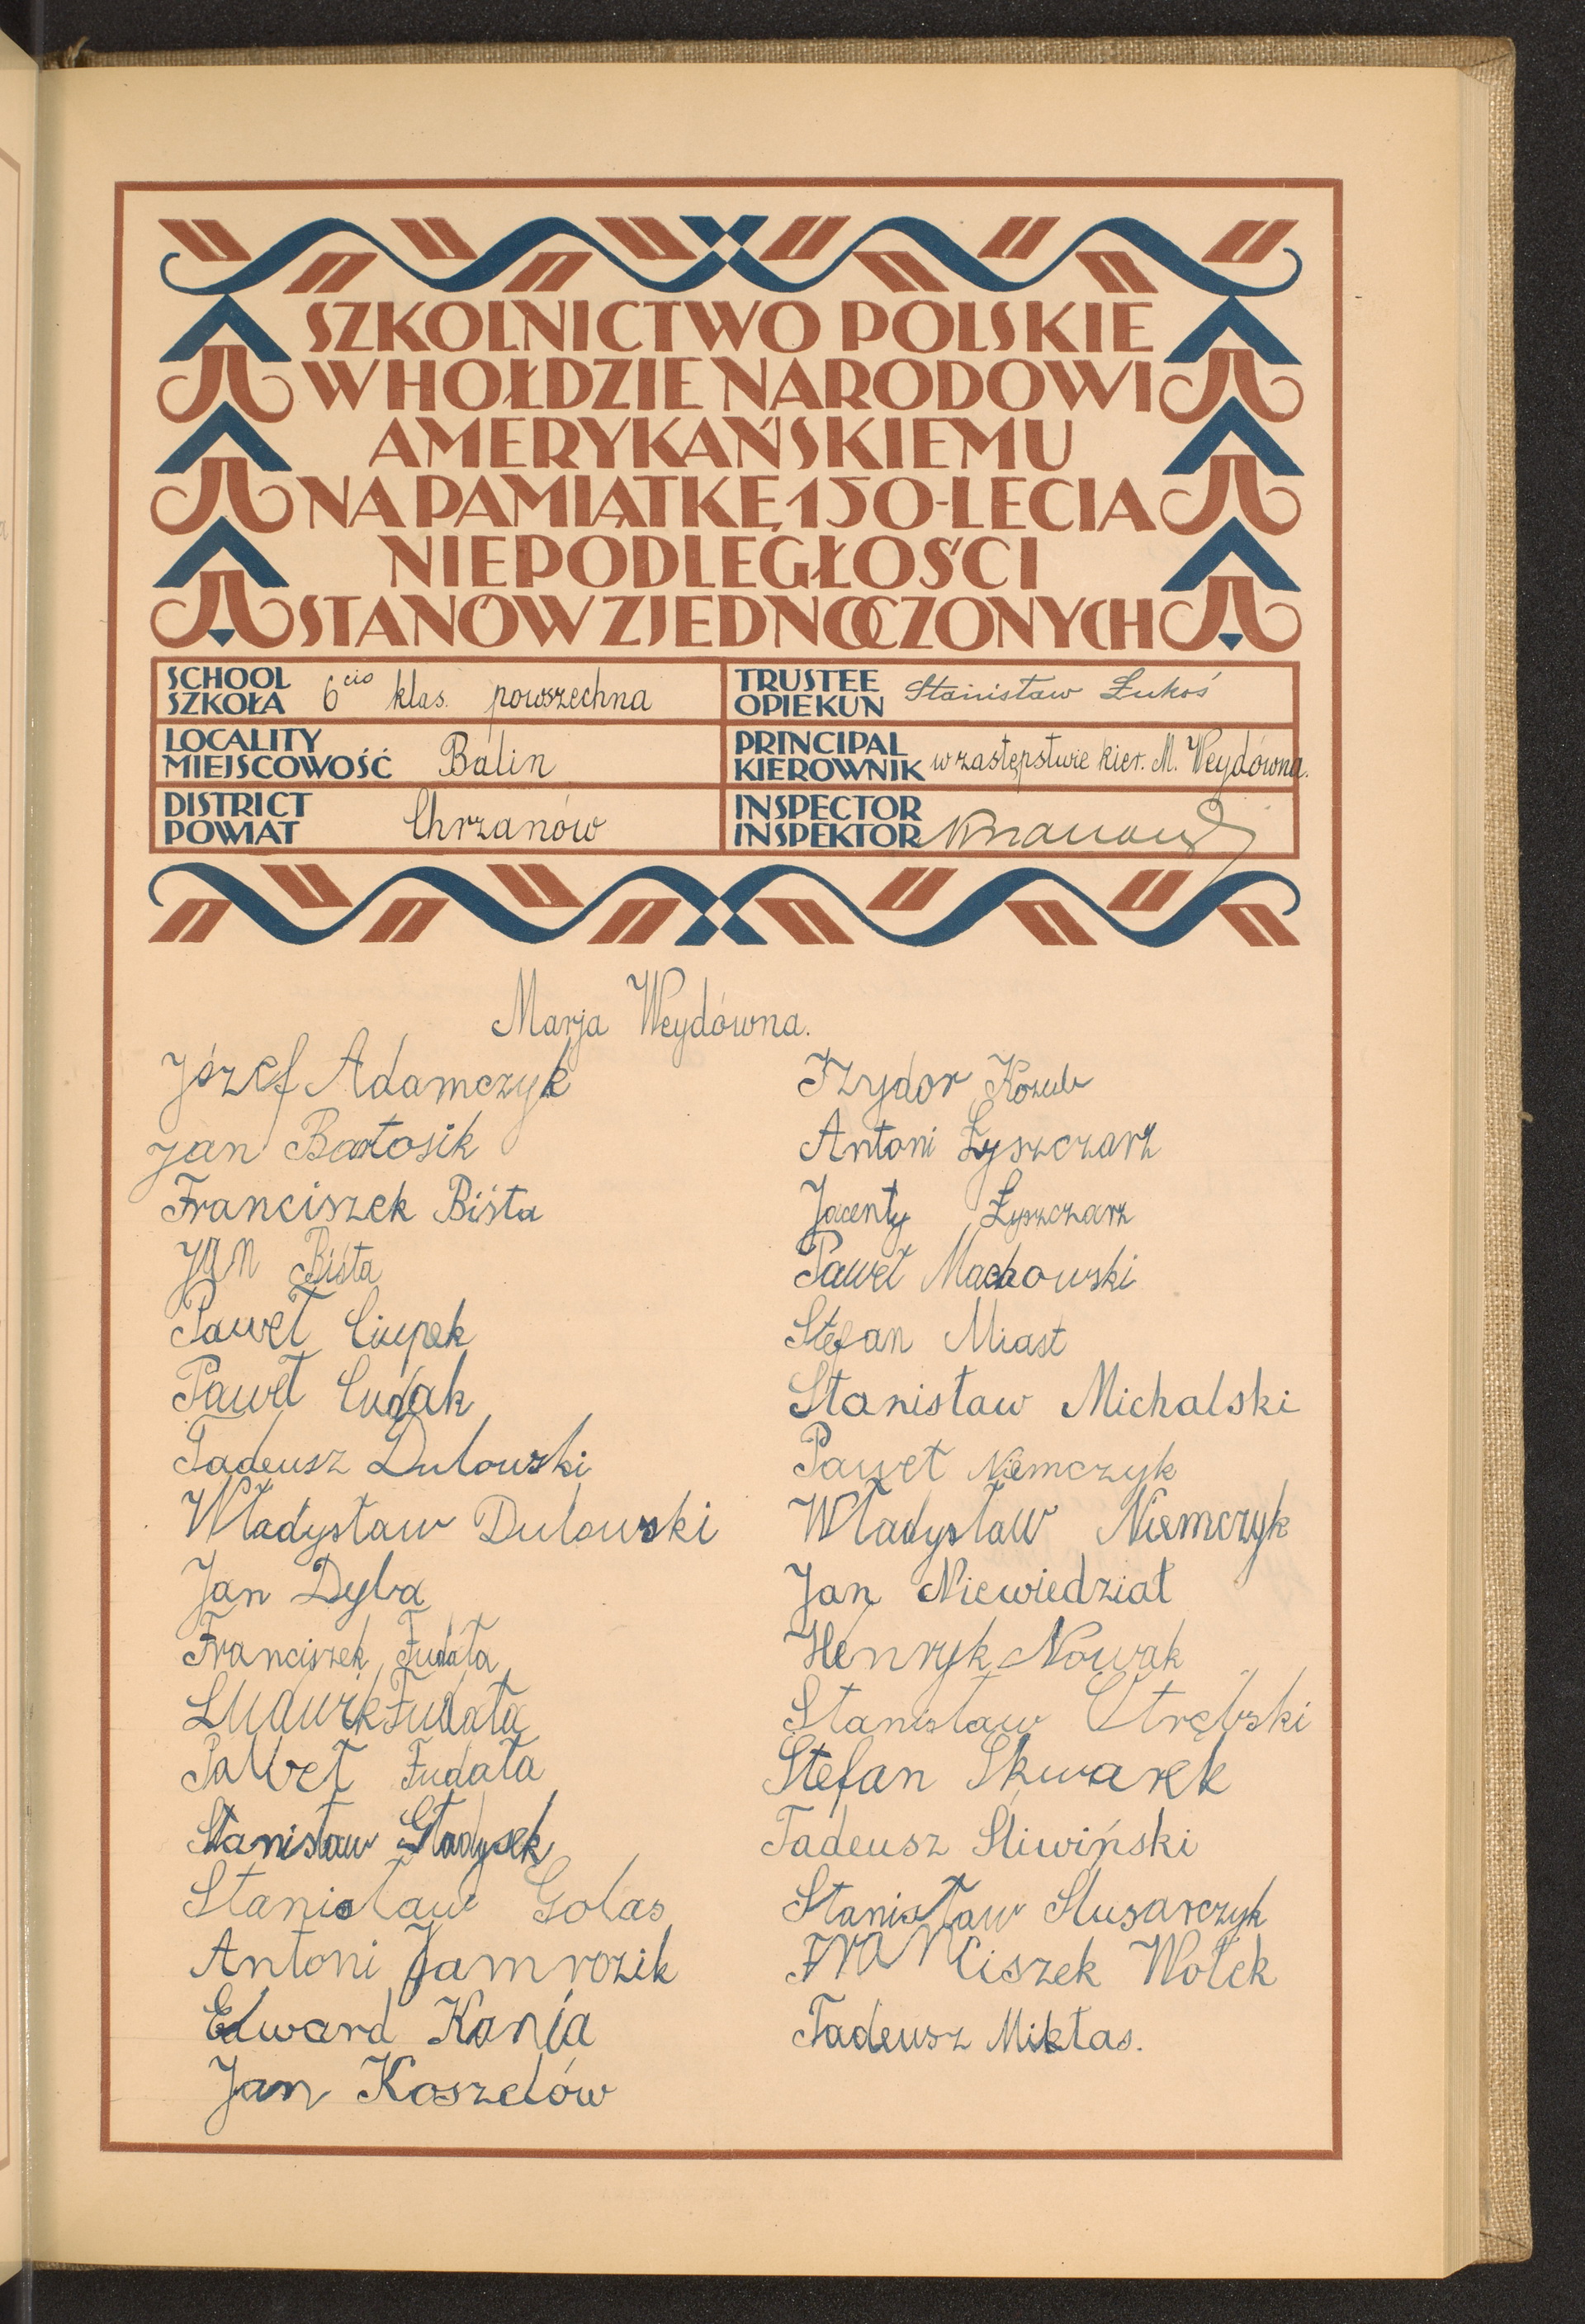 SZKOLNICTWO POLSKIE
W HOŁDZIE NARODOWI
AMERYKAŃSKIEMU
NA PAMIĄTKĘ 150-LECIA
NIEPODLEGŁOŚCI
STANÓW ZJEDNOCZONYCH
SCHOOL
SZKOŁA 6cio klas. powszechna
TRUSTEE
OPIEKUN Stanisław Łukoś
LOCALITY
MIEJSCOWOŚĆ Balin
PRINCIPAL
KIEROWNIK w zastępstwie kier. M. Weydówna.
DISTRICT
POWIAT Chrzanów
INSPECTOR
INSPEKTOR
Marja Weydówna.
Józef Adamczyk
Jan Bartosik
Franciszek Biśta
Jan Biśta
Paweł Ciupek
Paweł Cudak
Tadeusz Dulowski
Władysław Dulowski
Jan Dyba
Franciszek Fudała
Ludwik Fudała
Paweł Fudała
Stanisław Gładysek
Stanisław Golas
Antoni Jamrozik
Edward Kania
Jan Koszelów
Izydor Kozub
Antoni Łyszczarz
Jacenty Łyszczarz
Paweł Machowski
Stefan Miast
Stanisław Michalski
Paweł Niemczyk
Władysław Niemczyk
Jan Niewiedział
Henryk Nowak
Stanisław Otrębski
Stefan Skwarek
Tadeusz Śliwiński
Stanisław Ślusarczyk
Franciszek Wołek
Tadeusz Mikłas.